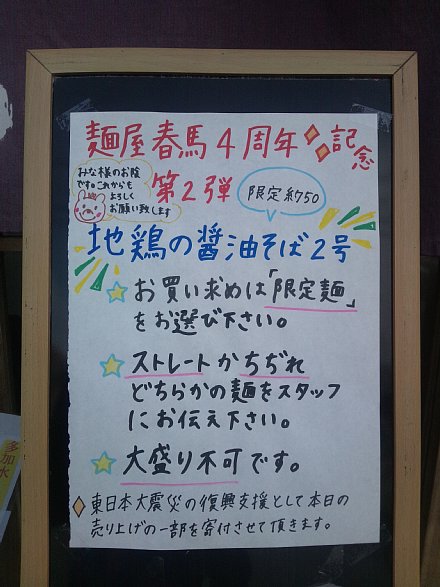 麺屋春馬4周年記念
みな様のお陰
です。これからも
よろしく
お願い致します
第2弾
限定¥750
地鶏の醤油そば2号
お買い求めは「限定麺」
をお選び下さい。
ストレートかちぢれ
どちらかの麺をスタッフ
にお伝え下さい。
大盛り不可です。
東日本大震災の復興支援として本日の
売り上げの一部を寄付させて頂きます。
多加水